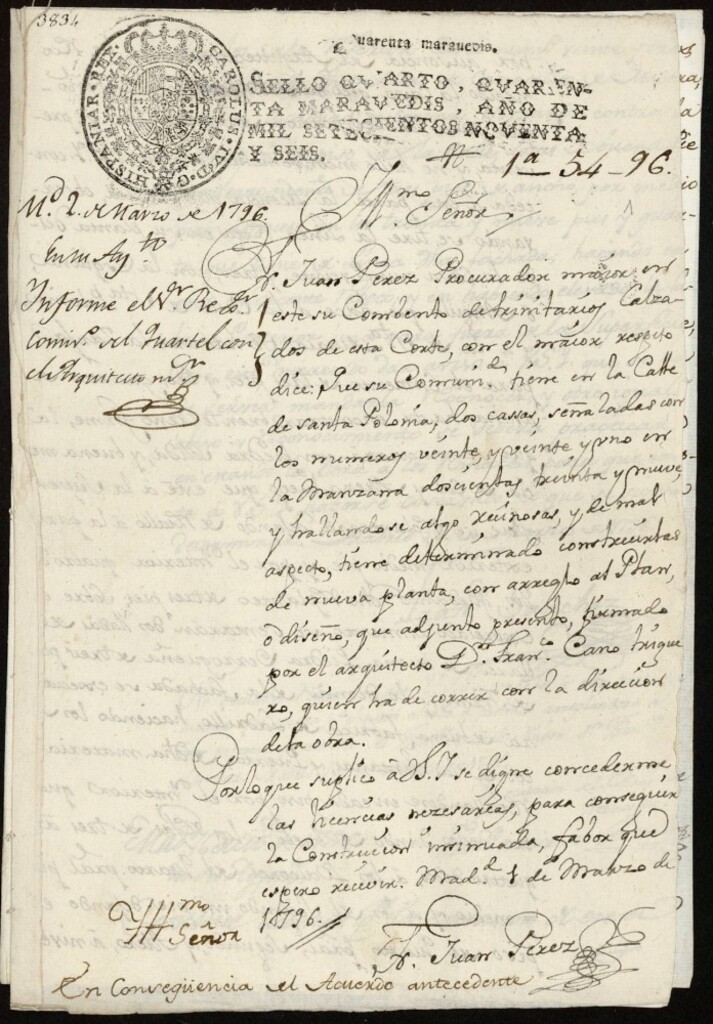 3834
CAROLUS IV D. G. HISPANIAR. REX.
Quarenta marauedis.
SELLO QVARTO, QVAREN-
TA MARAVEDIS, AÑO DE
MIL SETECIENTOS NOVENTA
Y SEIS.
1ª 54-96.
Yll.mo Señor
M.d 2. de Marzo de 1796.
En su Ay.to
Informe el S.or Rex.or
Comis.o del Quartel con
el Arquitecto m.or
Fr. Juan Perez Procurador maior en
este su Combento de trinitarios Calza-
dos de esta Corte, con el maior respeto
dice: Que su Comun.d tiene en la Calle
de santa Polonia, dos cassas, señaladas con
los numeros veinte, y veinte y uno en
la Manzana doscientas treinta y nueve,
y hallandose algo ruinosas, y de mal
aspecto, tiene determinado construirlas
de nueva planta, con arreglo al Plan,
o diseño, que adjunto presento, firmado
por el arquitecto D.n Fran.co Cano trigue
ro, quien ha de correr con la direccion
de la obra.
Por lo que suplico à V.S.I se digne concederme
las licencias nezesarias, para conseguir
la Construcion insinuada, fabor que
espero recivir. Mad.d 1 de Marzo de
1796.
Fr. Juan Perez
Yll.mo
Señor
En Conseqüencia del Acuerdo antecedente